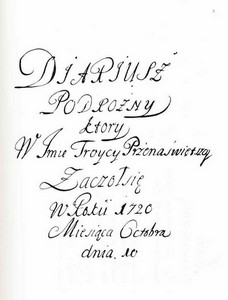 DIARIUSZ
PODROZNY
ktory
W Imie Troycy Przenaświętszey
Zaczołsię
W Roku 1720
Miesiąca Octobra
dnia. 10